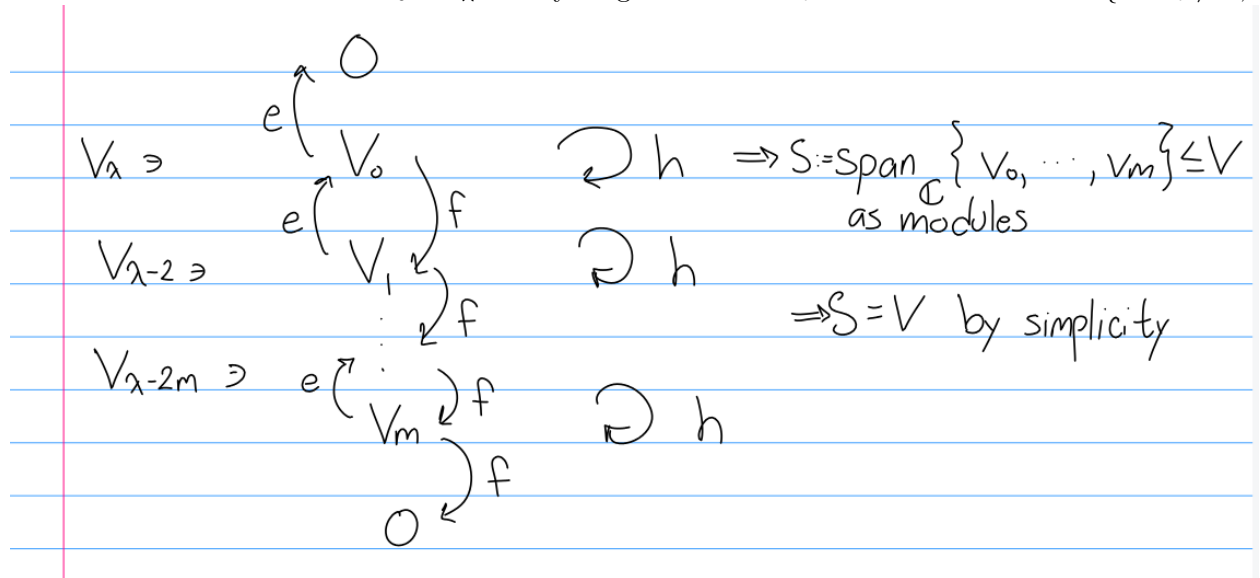 0
e
V_λ ∋ V_0 h ⇒ S:=Span_ℂ {V_0, ..., V_m} ≤ V
e f as modules
V_{λ-2} ∋ V_1 h
f ⇒ S = V by simplicity
V_{λ-2m} ∋ e f
V_m h
f
0